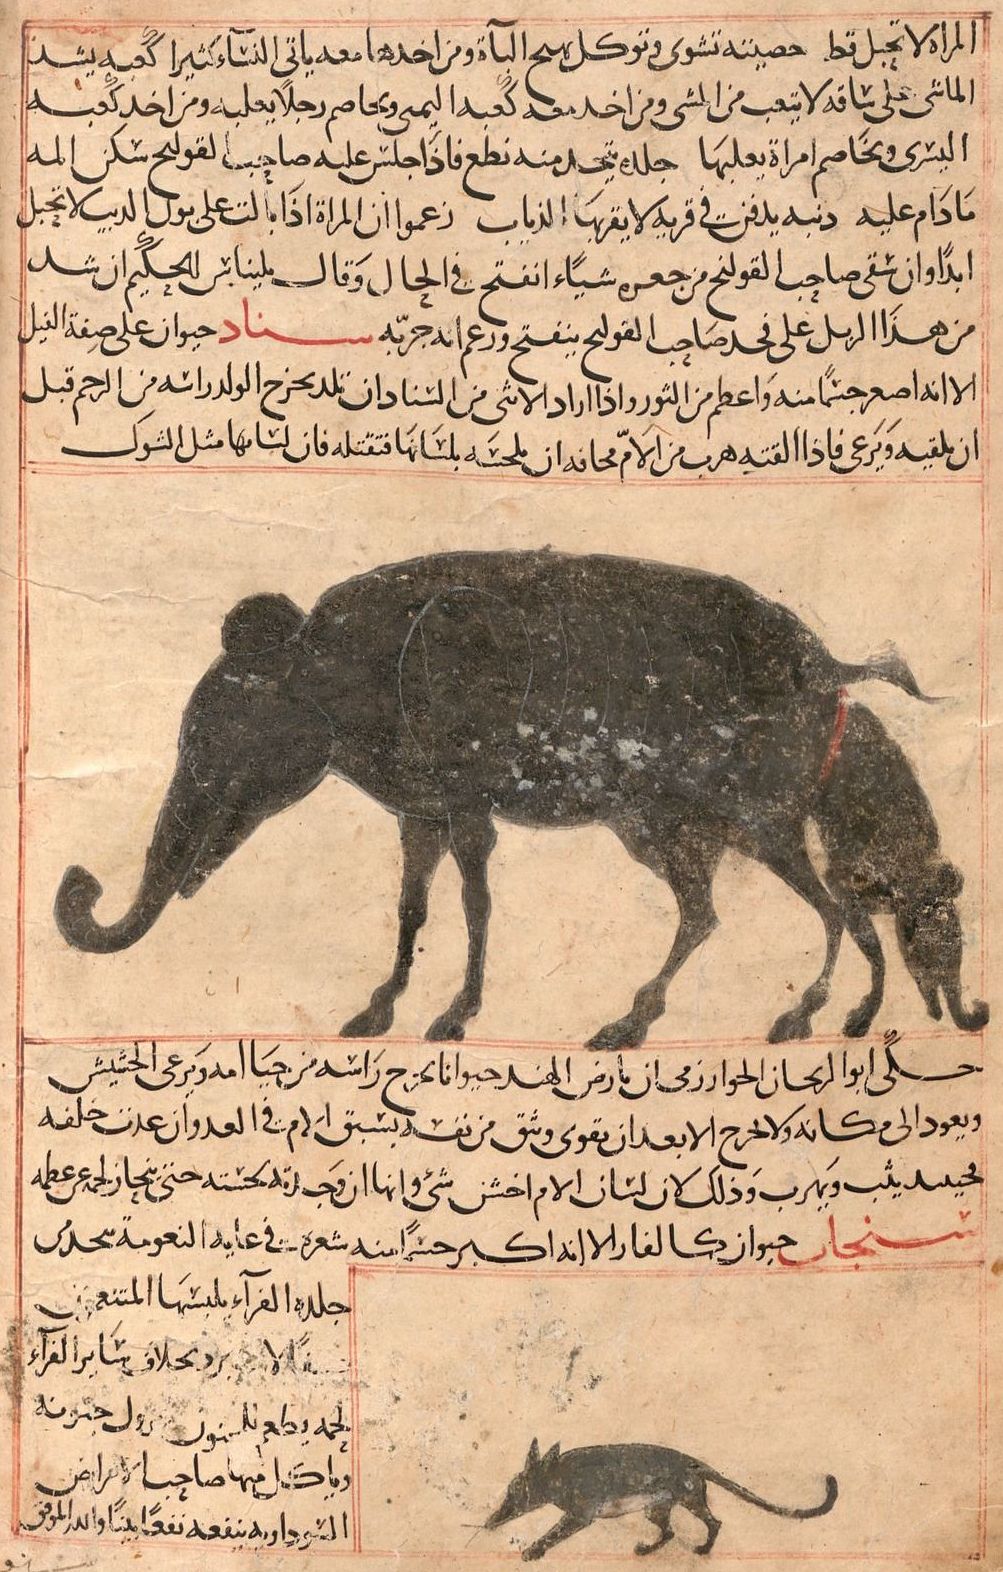 المراة لا تحبل قط حصيته تشوى وتوكل تهيج الباة ومن اخدها معه ياتى النساء كثيرا كعبه يشد
الماشى على ساقه لا يتعب من المشى ومن اخد معه كعبه اليمى ويخاصم رجلا يغلبه ومن اخد كعبه
اليسرى ويخاصم امراة يغلبها جلده يتخد منه نطع فاذا جلس عليه صاحب القولنج سكن المه
ما دام عليه دنبه يدفن في قرية لا يقربها الذياب زعموا ان المراة اذا بالت على بول الديب لا تحبل
ابدا وان سقى صاحب القولنج من جعره شياء انفتح في الحال وقال بليناس الحكيم ان شد
من هذا الزبل على فخد صاحب القولنج ينفتح وزعم انه جربه سناد حيوان على صفة الفيل
الا انه اصعر جسما منه واعطم من الثور واذا اراد الانثى من السناد ان تلد يخرج الولد راسه من الرحم قبل
ان يلقيه ويرعى فاذا القته هرب من الام مخافه ان يلحسه بلسانها فتقتله فان لسانها مثل الشوك
حكى ابو الريحان الخوارزمى ان بارض الهند حيوانا يخرج راسه من حيا امه ويرعى الحشيش
ويعود الى مكانه ولا يخرج الا بعد ان يقوى ويثق من نفسه بسبق الام في العدو ان عدت خلفه
فحينيد يثب ويهرب وذلك لان لسان الام اخشن شئ وانها ان وجدته لحسته حتى ينحاز لحمه عن عطمه
سنجاب حيوان كالفار الا انه اكبر جسما منه شعره في غاية النعومة يتخد من
جلده الفرآء يلبسها المتنعمون
بخلاف سائر الفرآء
لحمه يطعم للمجنون يزول جنونه
وياكل منها صاحب الامراض
السوداويه ينفعه نفعا بينا والله الموفق